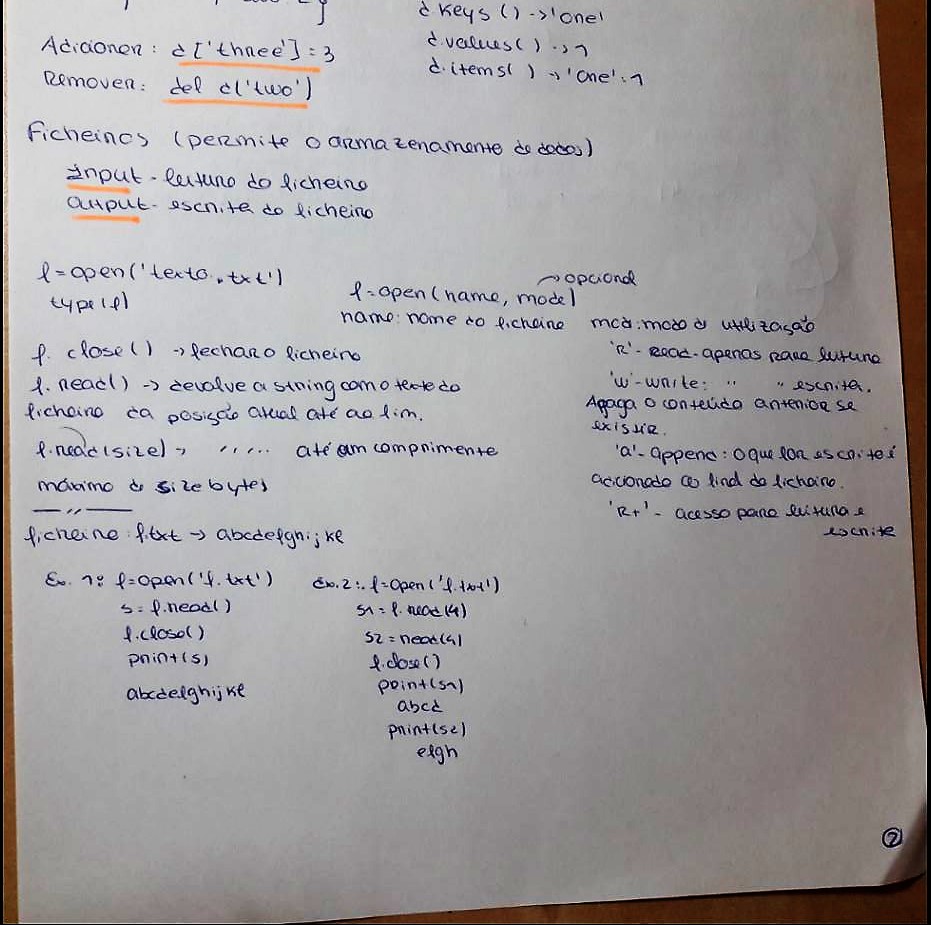 }
d.keys() -> 'one'
Adicionar: d['three'] = 3
d.values() -> 1
Remover: del d('two')
d.items() -> 'one': 1
Ficheiros (permite o armazenamento de dados)
Input - leitura do ficheiro
Output - escrita do ficheiro
f = open('texto.txt')
type(f)
-> opcional
f = open(name, mode)
name: nome do ficheiro
mod: modo de utilização
'R' - Read - apenas para leitura
'w' - write: " " escrita.
Apaga o conteúdo anterior se
existir.
'a' - append: o que for escrito é
adicionado ao final do ficheiro.
'R+' - acesso para leitura e
escrita
f. close() -> fechar o ficheiro
f. read() -> devolve a string com o texto do
ficheiro da posição atual até ao fim.
f. read(size) -> ''... até um comprimento
máximo de size bytes
— " —
ficheiro: f.txt -> abcdefghijkl
Ex. 1: f = open('f.txt')
s = f.read()
f.close()
print(s)
abcdefghijkl
Ex. 2: f = open('f.txt')
s1 = f.read(4)
s2 = read(4)
f.close()
print(s1)
abcd
print(s2)
efgh
2